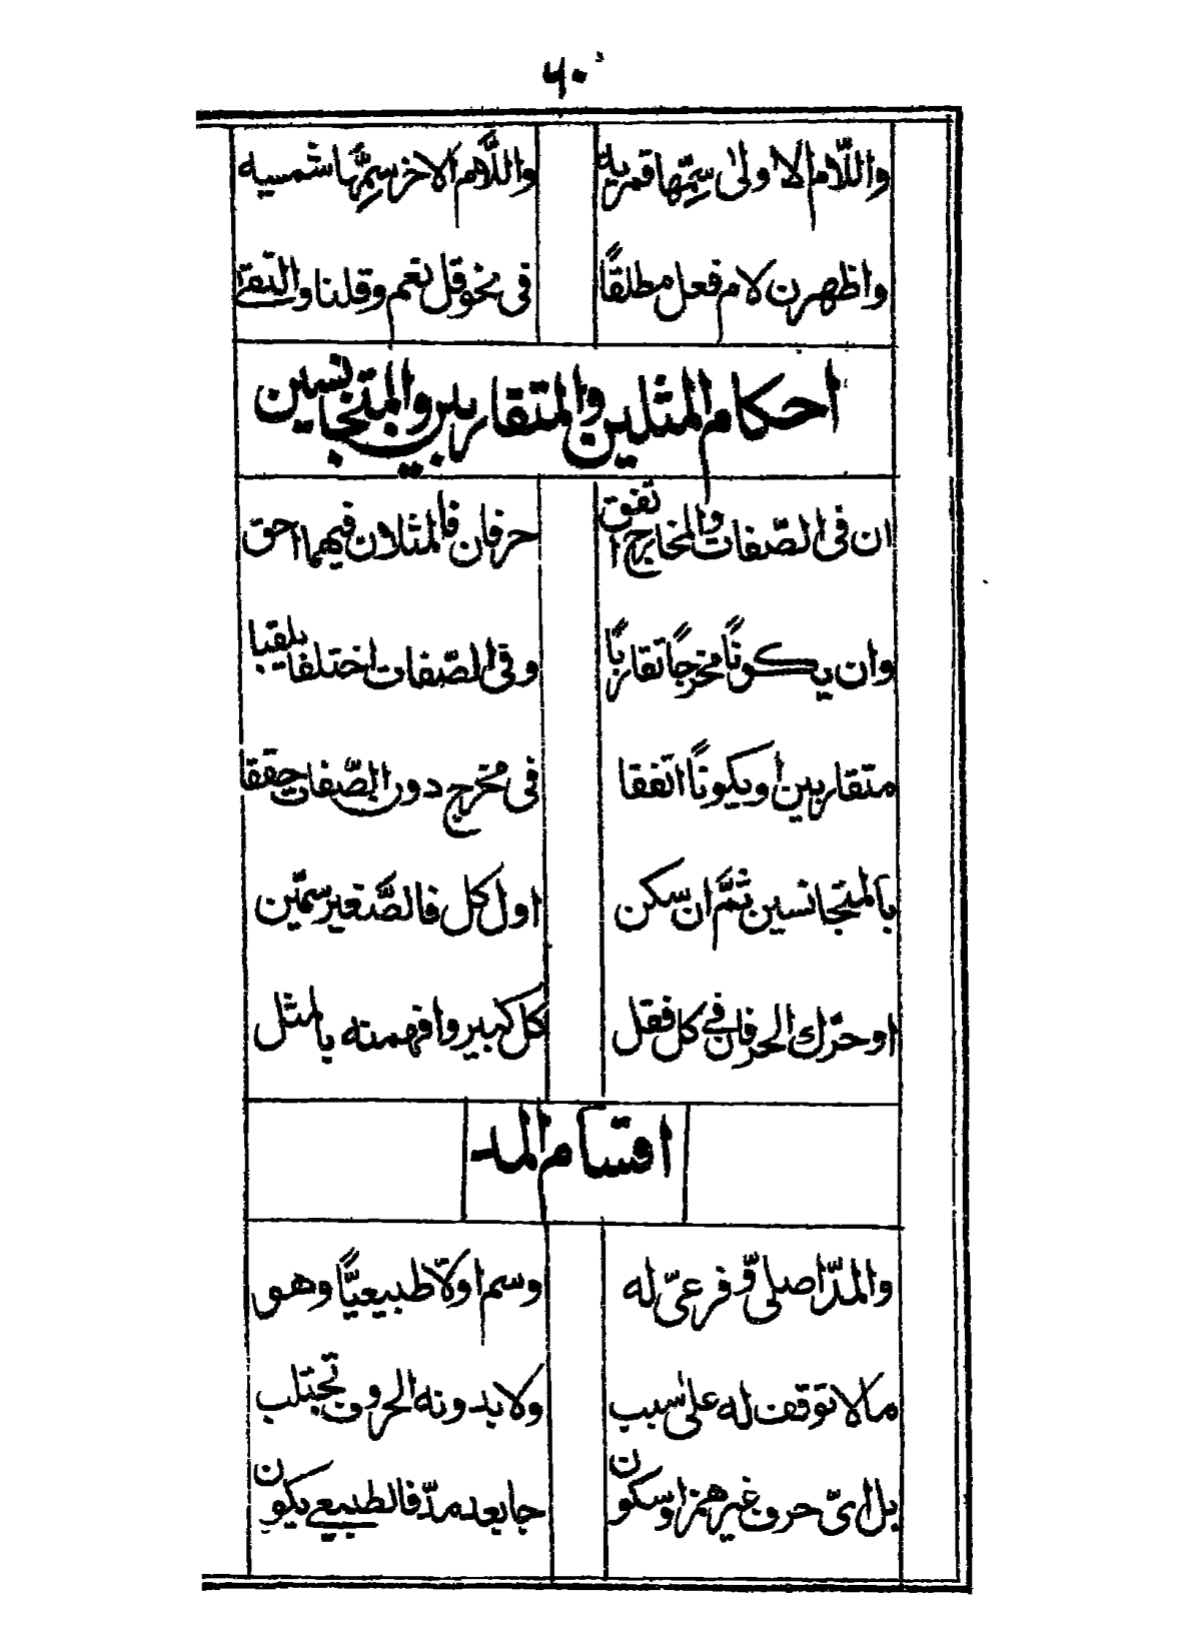 ٦٠
واللّام الاولىٰ سمّها قمريه واللّام الاخر سمّها شمسيه
واظهرن لام فعل مطلقًا فى نحو قل نعم وقلنا والتقىٰ
احكام المثلين والمتقاربين والمتجانسين
ان فى الصّفات والمخارج اتفق حرفان فالمثلان فيهما احق
وان يكونًا مخرجًا تقاربًا وفى الصّفات اختلفا يلقبا
متقاربين او يكونًا اتفقا فى مخرج دون الصّفات حققا
بالمتجانسين ثمَّ ان سكن اول كل فالصَّغير سمّين
او حرّك الحرفان فى كل فقل كل كبير وافهمنه بالمثل
اقسام المد
والمدّ اصلىّ و فرعىّ له وسم اولًا طبيعيًّا وهو
مالا توقف له علىٰ سبب ولا بدونه الحروف تجتلب
بل اىّ حرف غير همز او سكون جا بعد مدّ فالطبيعى يكون